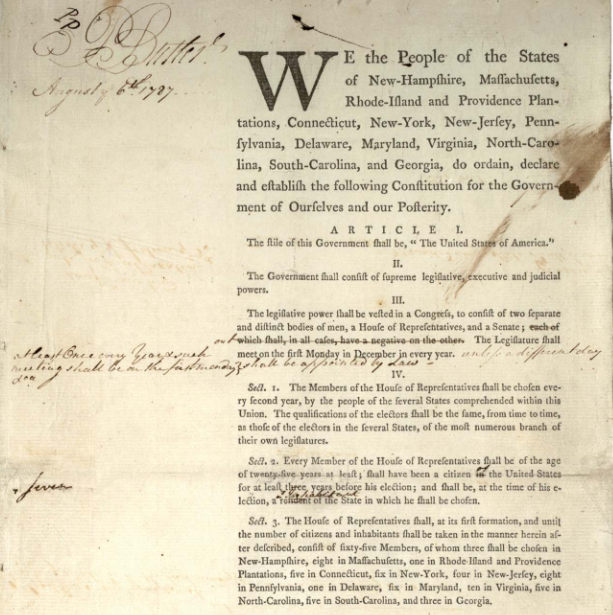 PP
P Butler
August 6th. 1787.
WE the People of the States
of New-Hampſhire, Maſſachuſetts,
Rhode-Iſland and Providence Plan-
tations, Connecticut, New-York, New-Jerſey, Penn-
ſylvania, Delaware, Maryland, Virginia, North-Caro-
lina, South-Carolina, and Georgia, do ordain, declare
and eſtabliſh the following Conſtitution for the Govern-
ment of Ourſelves and our Poſterity.
ARTICLE I.
The ſtile of this Government ſhall be, "The United States of America."
II.
The Government ſhall conſiſt of ſupreme legiſlative, executive and judicial
powers.
III.
The legiſlative power ſhall be veſted in a Congreſs, to conſiſt of two ſeparate
and diſtinct bodies of men, a Houſe of Repreſentatives, and a Senate; each of
which ſhall, in all caſes, have a negative on the other. The Legiſlature ſhall
at least Once every Year & such
meet on the firſt Monday in December in every year. unless a different day
meeting shall be on the first monday shall be appointed by Law
IV.
Sect. 1. The Members of the Houſe of Repreſentatives ſhall be choſen eve-
ry ſecond year, by the people of the ſeveral States comprehended within this
Union. The qualifications of the electors ſhall be the ſame, from time to time,
as thoſe of the electors in the ſeveral States, of the moſt numerous branch of
their own legiſlatures.
Sect. 2. Every Member of the Houſe of Repreſentatives ſhall be of the age
of twenty-five years at leaſt; ſhall have been a citizen of the United States
seven
for at leaſt three years before his election; and ſhall be, at the time of his e-
lection, a reſident of the State in which he ſhall be choſen.
Sect. 3. The Houſe of Repreſentatives ſhall, at its firſt formation, and until
the number of citizens and inhabitants ſhall be taken in the manner herein af-
ter deſcribed, conſiſt of ſixty-five Members, of whom three ſhall be choſen in
New-Hampſhire, eight in Maſſachuſetts, one in Rhode-Iſland and Providence
Plantations, five in Connecticut, ſix in New-York, four in New-Jerſey, eight
in Pennſylvania, one in Delaware, ſix in Maryland, ten in Virginia, five in
North-Carolina, five in South-Carolina, and three in Georgia.